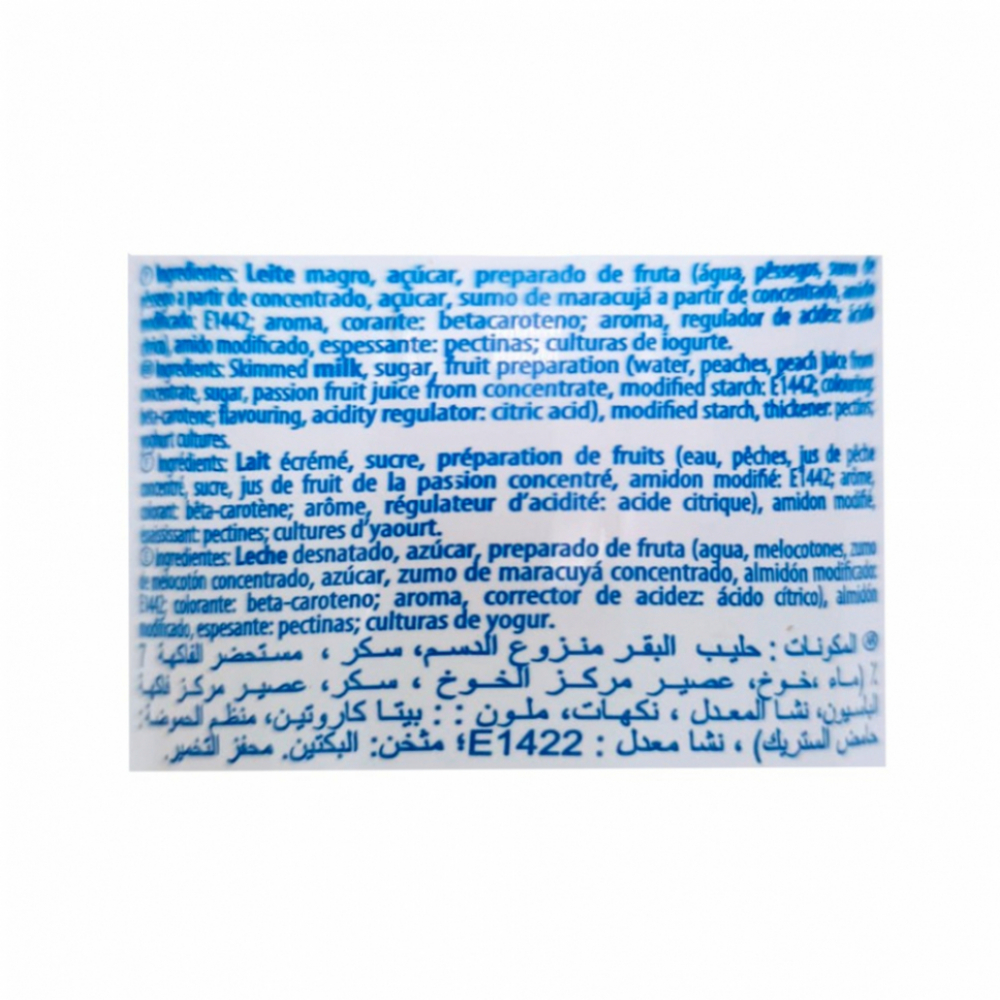 Ingredientes: Leite magro, açúcar, preparado de fruta (água, pêssegos, sumo de
a partir de concentrado, açúcar, sumo de maracujá a partir de concentrado, amido
modificado: E1442; aroma, corante: betacaroteno; aroma, regulador de acidez: ácido
amido modificado, espessante: pectinas; culturas de iogurte.
Ingredients: Skimmed milk, sugar, fruit preparation (water, peaches, peach juice from
concentrate, sugar, passion fruit juice from concentrate, modified starch: E1442; colouring:
beta-carotene; flavouring, acidity regulator: citric acid), modified starch, thickener: pectins;
yoghurt cultures.
Ingrédients: Lait écrémé, sucre, préparation de fruits (eau, pêches, jus de pêche
concentré, sucre, jus de fruit de la passion concentré, amidon modifié: E1442; arôme,
colorant: bêta-carotène; arôme, régulateur d'acidité: acide citrique), amidon modifié,
épaississant: pectines; cultures d'yaourt.
Ingredientes: Leche desnatado, azúcar, preparado de fruta (agua, melocotones, zumo
de melocotón concentrado, azúcar, zumo de maracuyá concentrado, almidón modificado:
E1442; colorante: beta-caroteno; aroma, corrector de acidez: ácido cítrico), almidón
modificado, espesante: pectinas; culturas de yogur.
المكونات : حليب البقر منزوع الدسم، سكر ، مستحضر الفاكهة 7
٪ (ماء ،خوخ، عصير مركز الخوخ ، سكر، عصير مركز فاكهة
الباسيون، نشا المعدل ، نكهات، ملون : : بيتا كاروتين، منظم الحموضة:
حامض الستريك) ، نشا معدل : E1422؛ مثخن: البكتين. محفز التخمير.